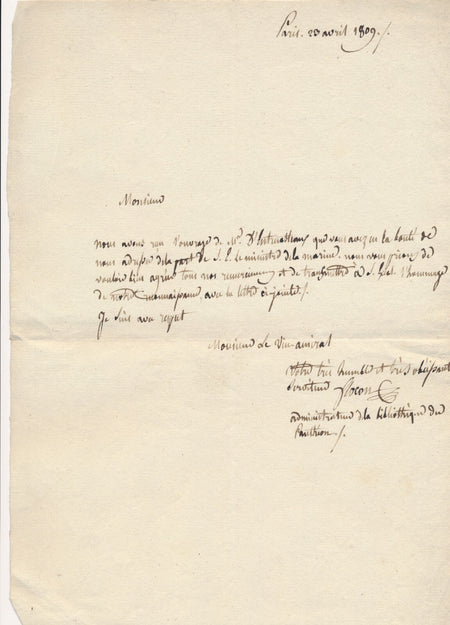 Paris. 23 avril 1809./.
Monsieur
nous avons reçu l'ouvrage de Mr. D'Entrecasteaux que vous avez eu la bonté de
nous adresser de la part de S. E. le ministre de la marine. nous vous prions de
vouloir bien agréer tous nos remerciemens et de transmettre à S. Ex. l'hommage
de notre reconnaissance avec la lettre ci-jointe/.
Je suis avec respect
Monsieur Le Vice-amiral
Votre très humble et très obéissant
serviteur flocon
administrateur de la bibliothèque du
Panthéon/.